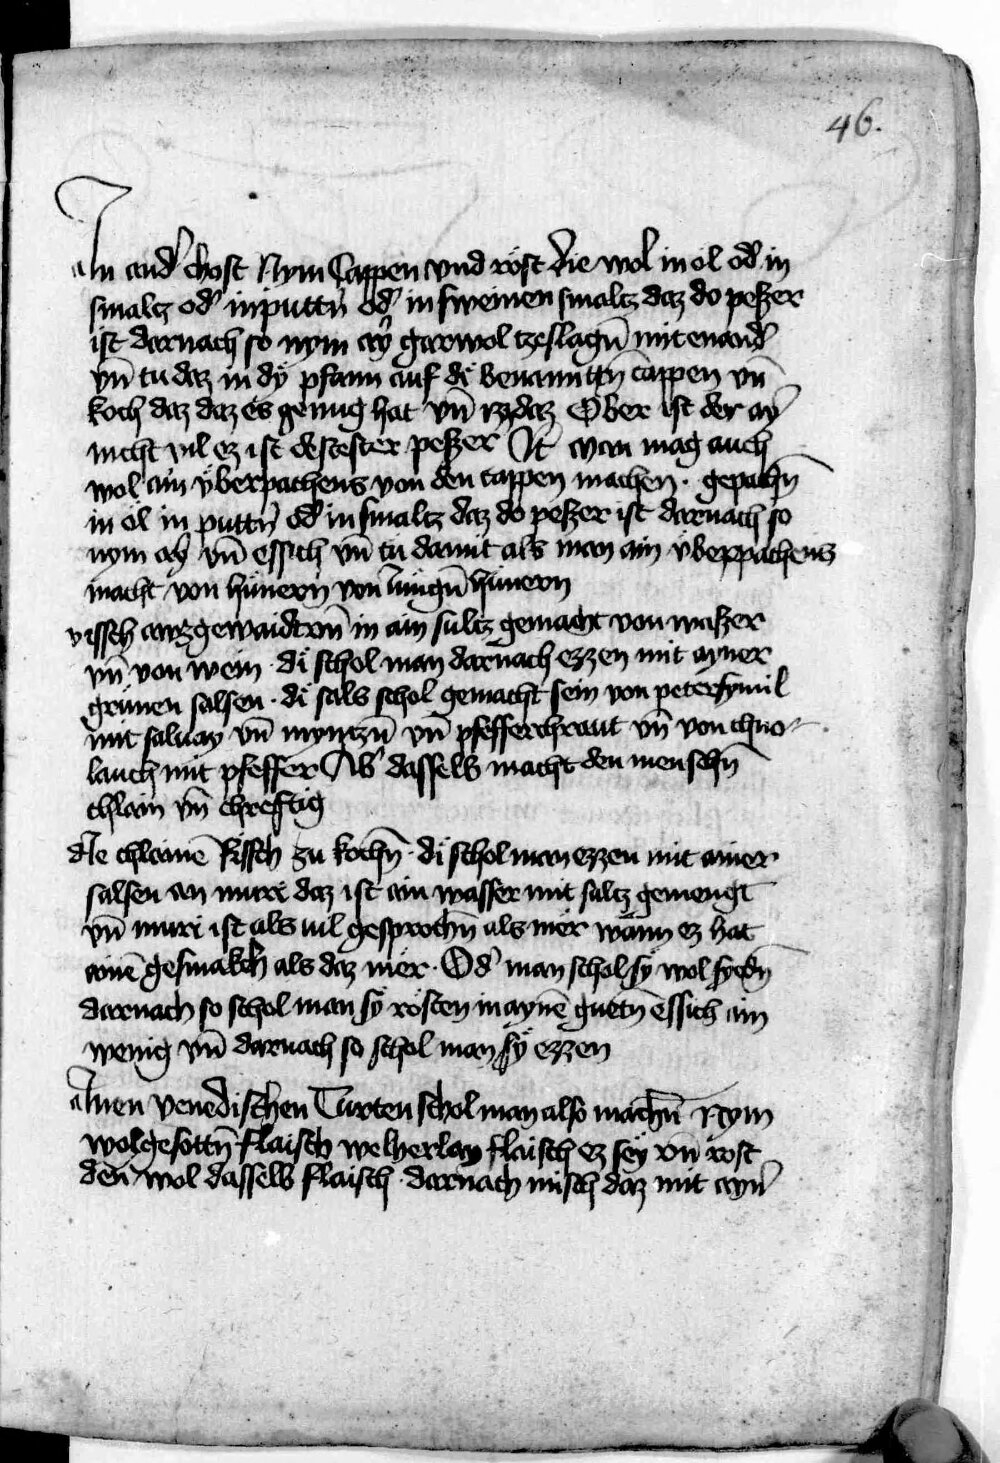 46.
Ain and̄ chost Nym Cappen vnd röst die wol in öl od̄ in
smaltz od̄ in puttn̄ od̄ in sweinen smaltz daz do peſzer
ist darnach so nym ay gar wol tzeslagn̄ mitenand̄
vn̄ tu daz in dÿ pfann auf di benanntn̄ cappen vn̄
koch daz daz es genug hat vn̄ izz daz Ob er ist der ayr̄
nicht vil ez ist dester peſzer It̄ man mag auch
wol ain v̈berpachens von den cappen machen · gepachn̄
in öl in puttn̄ od̄ in smaltz daz do peſzer ist darnach so
nym ay vn̄ essich vn̄ tu damit als man ain v̈berpachens
macht von hünern von iungn̄ hünern
vissch auzgewaidet vn̄ in ain sultz gemacht von waſzer
vn̄ von wein · di schol man darnach ezzen mit ayner
grünen salsen · di sals schol gemacht sein von petersymil
mit saluay vn̄ myntzn̄ vn̄ pfefferchraut vn̄ von chno-
lauch mit pfeffer Ab̄ dasselb macht den menschn̄
chlain vn̄ chreftig
die chlainē vissch zu kochn̄ · di schol man ezzen mit ainer
salsen an muri daz ist ain wasser mit saltz gemengt
vn̄ muri ist als vil gesprochn̄ als mer wann ez hat
ainē gesmakch als daz mer · Od̄ man schol sÿ wol syedn̄
darnach so schol man sÿ rösten in aynē guetn̄ essich ain
wenig vn̄ darnach so schol man sÿ ezzen
Ainen venedischen Turten schol man also machn̄ Nym
wolgesottn̄ flaisch welherlay flaisch ez sey vn̄ röst
den wol dasselb flaisch · darnach misch daz mit ayrn̄